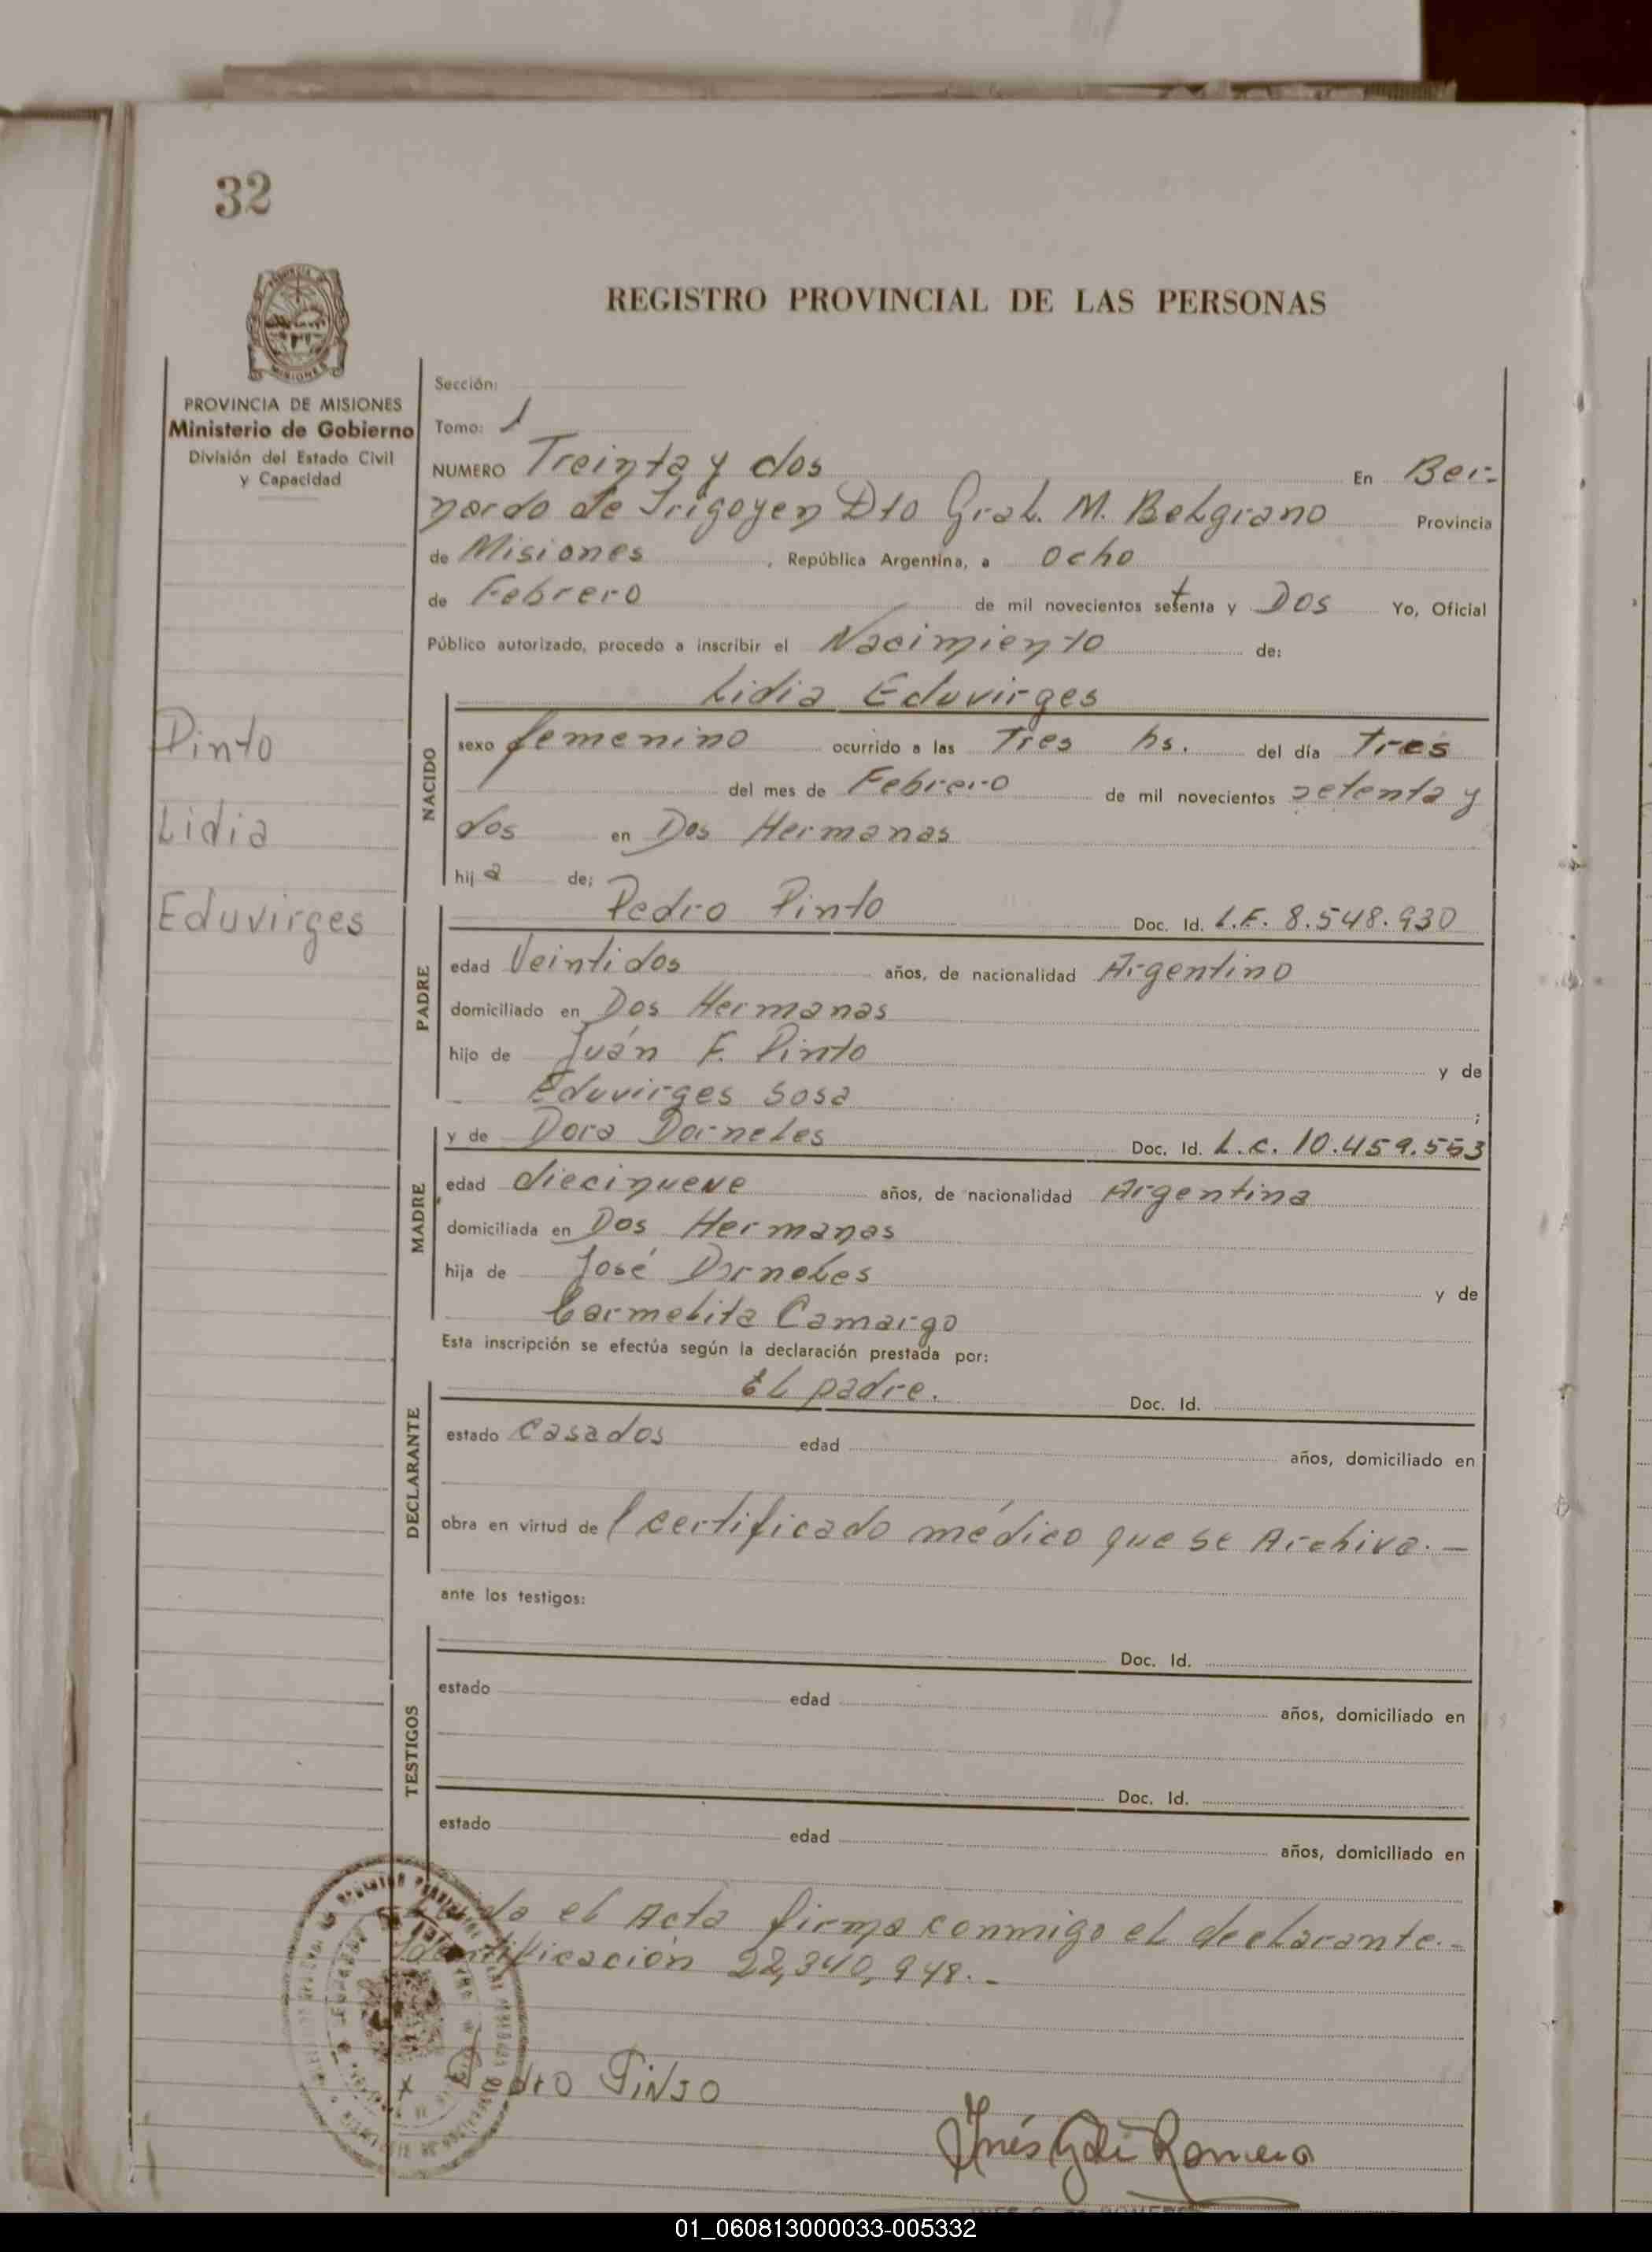 32
REGISTRO PROVINCIAL DE LAS PERSONAS
PROVINCIA DE MISIONES
Ministerio de Gobierno
División del Estado Civil
y Capacidad
Pinto
Lidia
Eduvirges
Sección:
Tomo: 1
NUMERO Treinta y dos En Ber-
nardo de Irigoyen Dto Gral. M. Belgrano Provincia
de Misiones , República Argentina, a ocho
de Febrero de mil novecientos setenta y Dos Yo, Oficial
Público autorizado, procedo a inscribir el Nacimiento de:
Lidia Eduvirges
NACIDO
sexo femenino ocurrido a las Tres hs. del día tres
del mes de Febrero de mil novecientos setenta y
dos en Dos Hermanas
hij a de;
Pedro Pinto Doc. Id. L.E. 8.548.930
PADRE
edad Veintidos años, de nacionalidad Argentino
domiciliado en Dos Hermanas
hijo de Juán F. Pinto y de
Eduvirges Sosa ;
y de Dora Dorneles Doc. Id. L.C. 10.459.553
MADRE
edad diecinueve años, de nacionalidad Argentina
domiciliada en Dos Hermanas
hija de José Dorneles y de
Carmelita Camargo
Esta inscripción se efectúa según la declaración prestada por:
El padre. Doc. Id.
DECLARANTE
estado casados edad años, domiciliado en
obra en virtud de l certificado médico que se Archiva.-
ante los testigos:
Doc. Id.
TESTIGOS
estado edad años, domiciliado en
Doc. Id.
estado edad años, domiciliado en
el Acta firma conmigo el declarante.-
Identificación 22,340,948.-
Pinto
Inés G. de Romero
01_060813000033-005332